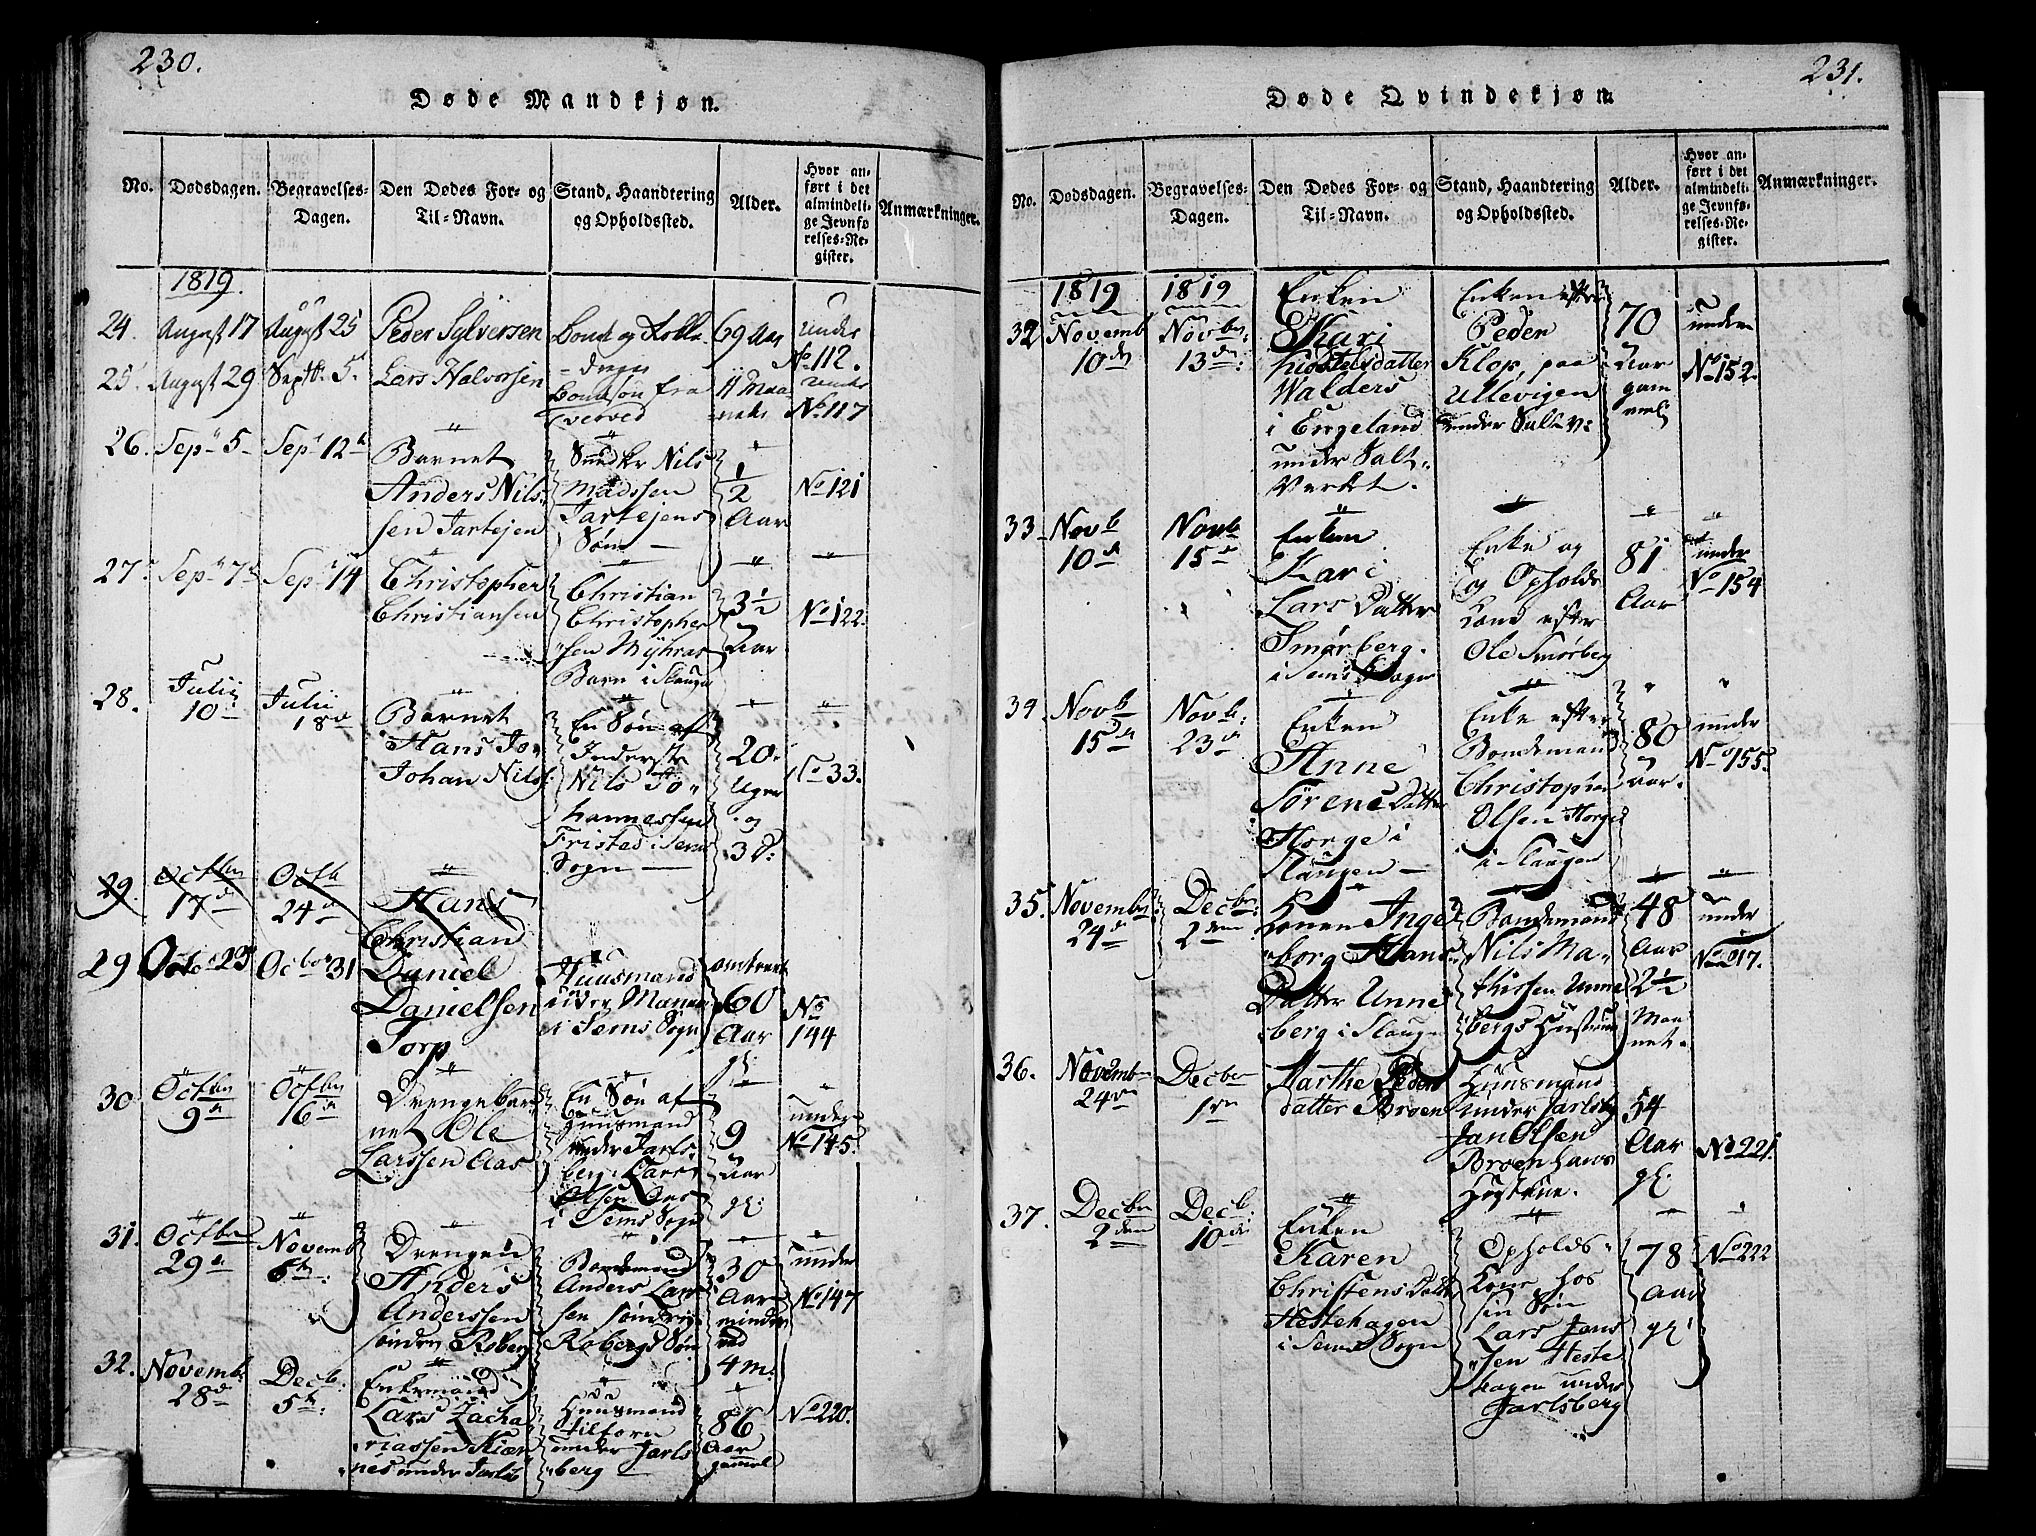 230.
Døde Mandkjøn.
No.
Dødsdagen.
Begravelses-
Dagen.
Den Dødes For- og
Til-Navn.
Stand, Haandtering
og Opholdssted.
Alder.
Hvor an-
ført i det
almindeli-
ge Jevnfø
relses-Re-
gister.
Anmærkninger.
1819.
24. August 17 August 25 Peder Sylversen Bonde og 69 Aar under
No 112.
25. August 29 Septb. 5. Lars Halvorsen
Bondesøn fra
Tverved
11 Maa-
neder
under
No 117
26. Sept 5 Sept 12
Barnet
Anders Nils-
sen Jartejen
Snedker Nils
Madssen
Jartejens
Søn
1/2
Aar
No 121
27. Sept 7 Sept 14
Christopher
Christiansen
Christian
Christopher
sen Myhras
Barn i Slaugen
3 1/2
Aar
No 122.
28.
Julii
10
Julii
18
Barnet
Hans Jo-
Johan Nils
En Søn af
Inderste
Nils Jo-
hannessen
Fristad i Sems
Sogn
20.
Uger
og
3 D:
No 33.
29.
Octbr
17
Octb
24
Hans
Christian
29 Octo 23 Octbor 31
Daniel
Danielsen
Torp
Huusmand
i Sems Sogn
omtrent
60
Aar
gl:
No
144
30
Octbr
9
Octbr
16
Drengebar-
net Ole
Larssen Aas
En Søn af
Huusmand
under Jarls-
berg Lars
Olsen Aas
i Sems Sogn
9
Aar
gl:
under
No 145.
31.
Octbr
29
Novemb
6
Drengen
Anders
Anderssen
søndre Roberg
Bondemand
Anders Lar-
sen søndre
Robergs Søn
30
Aar
mindre
end
4 m:
under
No 147
32.
Novemb
28
Decb:
5
Enkemand
Lars Zacha
riassen Kiær
nes under Jarlsb
Huusmand
tilforn
under Jarls
berg
86
Aar
gammel
No 220.
231.
Døde Qvindekjøn.
No.
Dødsdagen.
Begravelses-
Dagen.
Den Dødes For- og
Til-Navn.
Stand, Haandtering
og Opholdssted.
Alder.
Hvor an-
ført i det
almindeli-
ge Jevnfø-
relses-Re-
gister.
Anmærkninger.
1819 1819
32
Novemb
10
Novbr:
13
Enken
Kari
Walders
i Engeland
under Salt-
Verket.
Enken efter
Peder
Klop, paa
Ullevigen
under Salt V:
70
Aar
gam
mel
under
No 152.
33.
Novb
10
Novb
15
Enken
Kari
Lars Datter
Smørberg
i Sems Sogn
Enke og
og Opholds
Kone efter
Ole Smørberg
81
Aar
under
No 154
34
Novb
15
Novb:
23
Enken
Anne
Sørens Datter
Horge i
Slaugen
Enke efter
Bondemand
Christopher
Olsen Horge
i Slaugen
80
Aar.
under
No 155.
35.
November
24
Decbr:
2den
Konen Inge
borg Hans
Datter Unne
berg i Slaugen
Bondemand
Nils Ma-
thissen Unne
bergs Hustrue
48
Aar
2 1/2
Maa
net.
under
No 217.
36.
Novemb
24
Decbr
1ste
Marthe Peders
datter Broen
Huusmand
under Jarlsberg
Jan Olsen
Broen hans
Hustrue.
54
Aar
gl:
No 221.
37.
Decbr
2den
Decb:
10
Enken
Karen
Christens Datter
Hestehagen
i Sems Sogn
Opholds-
Kone hos
sin Søn
Lars Jens
sen Heste
hagen under
Jarlsberg
78
Aar
gl:
No 222